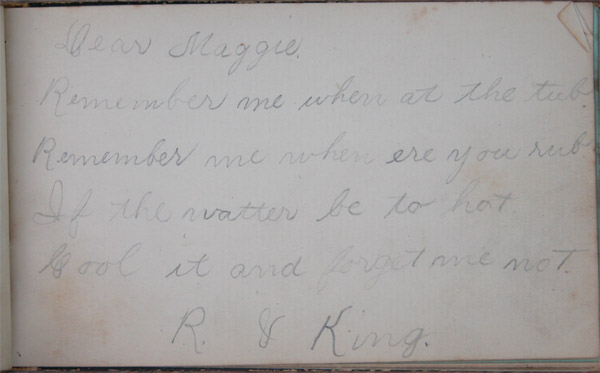 Dear Maggie.
Remember me when at the tub.
Remember me when ere you rub
If the watter be to hot
Cool it and forget me not.
R. J King.